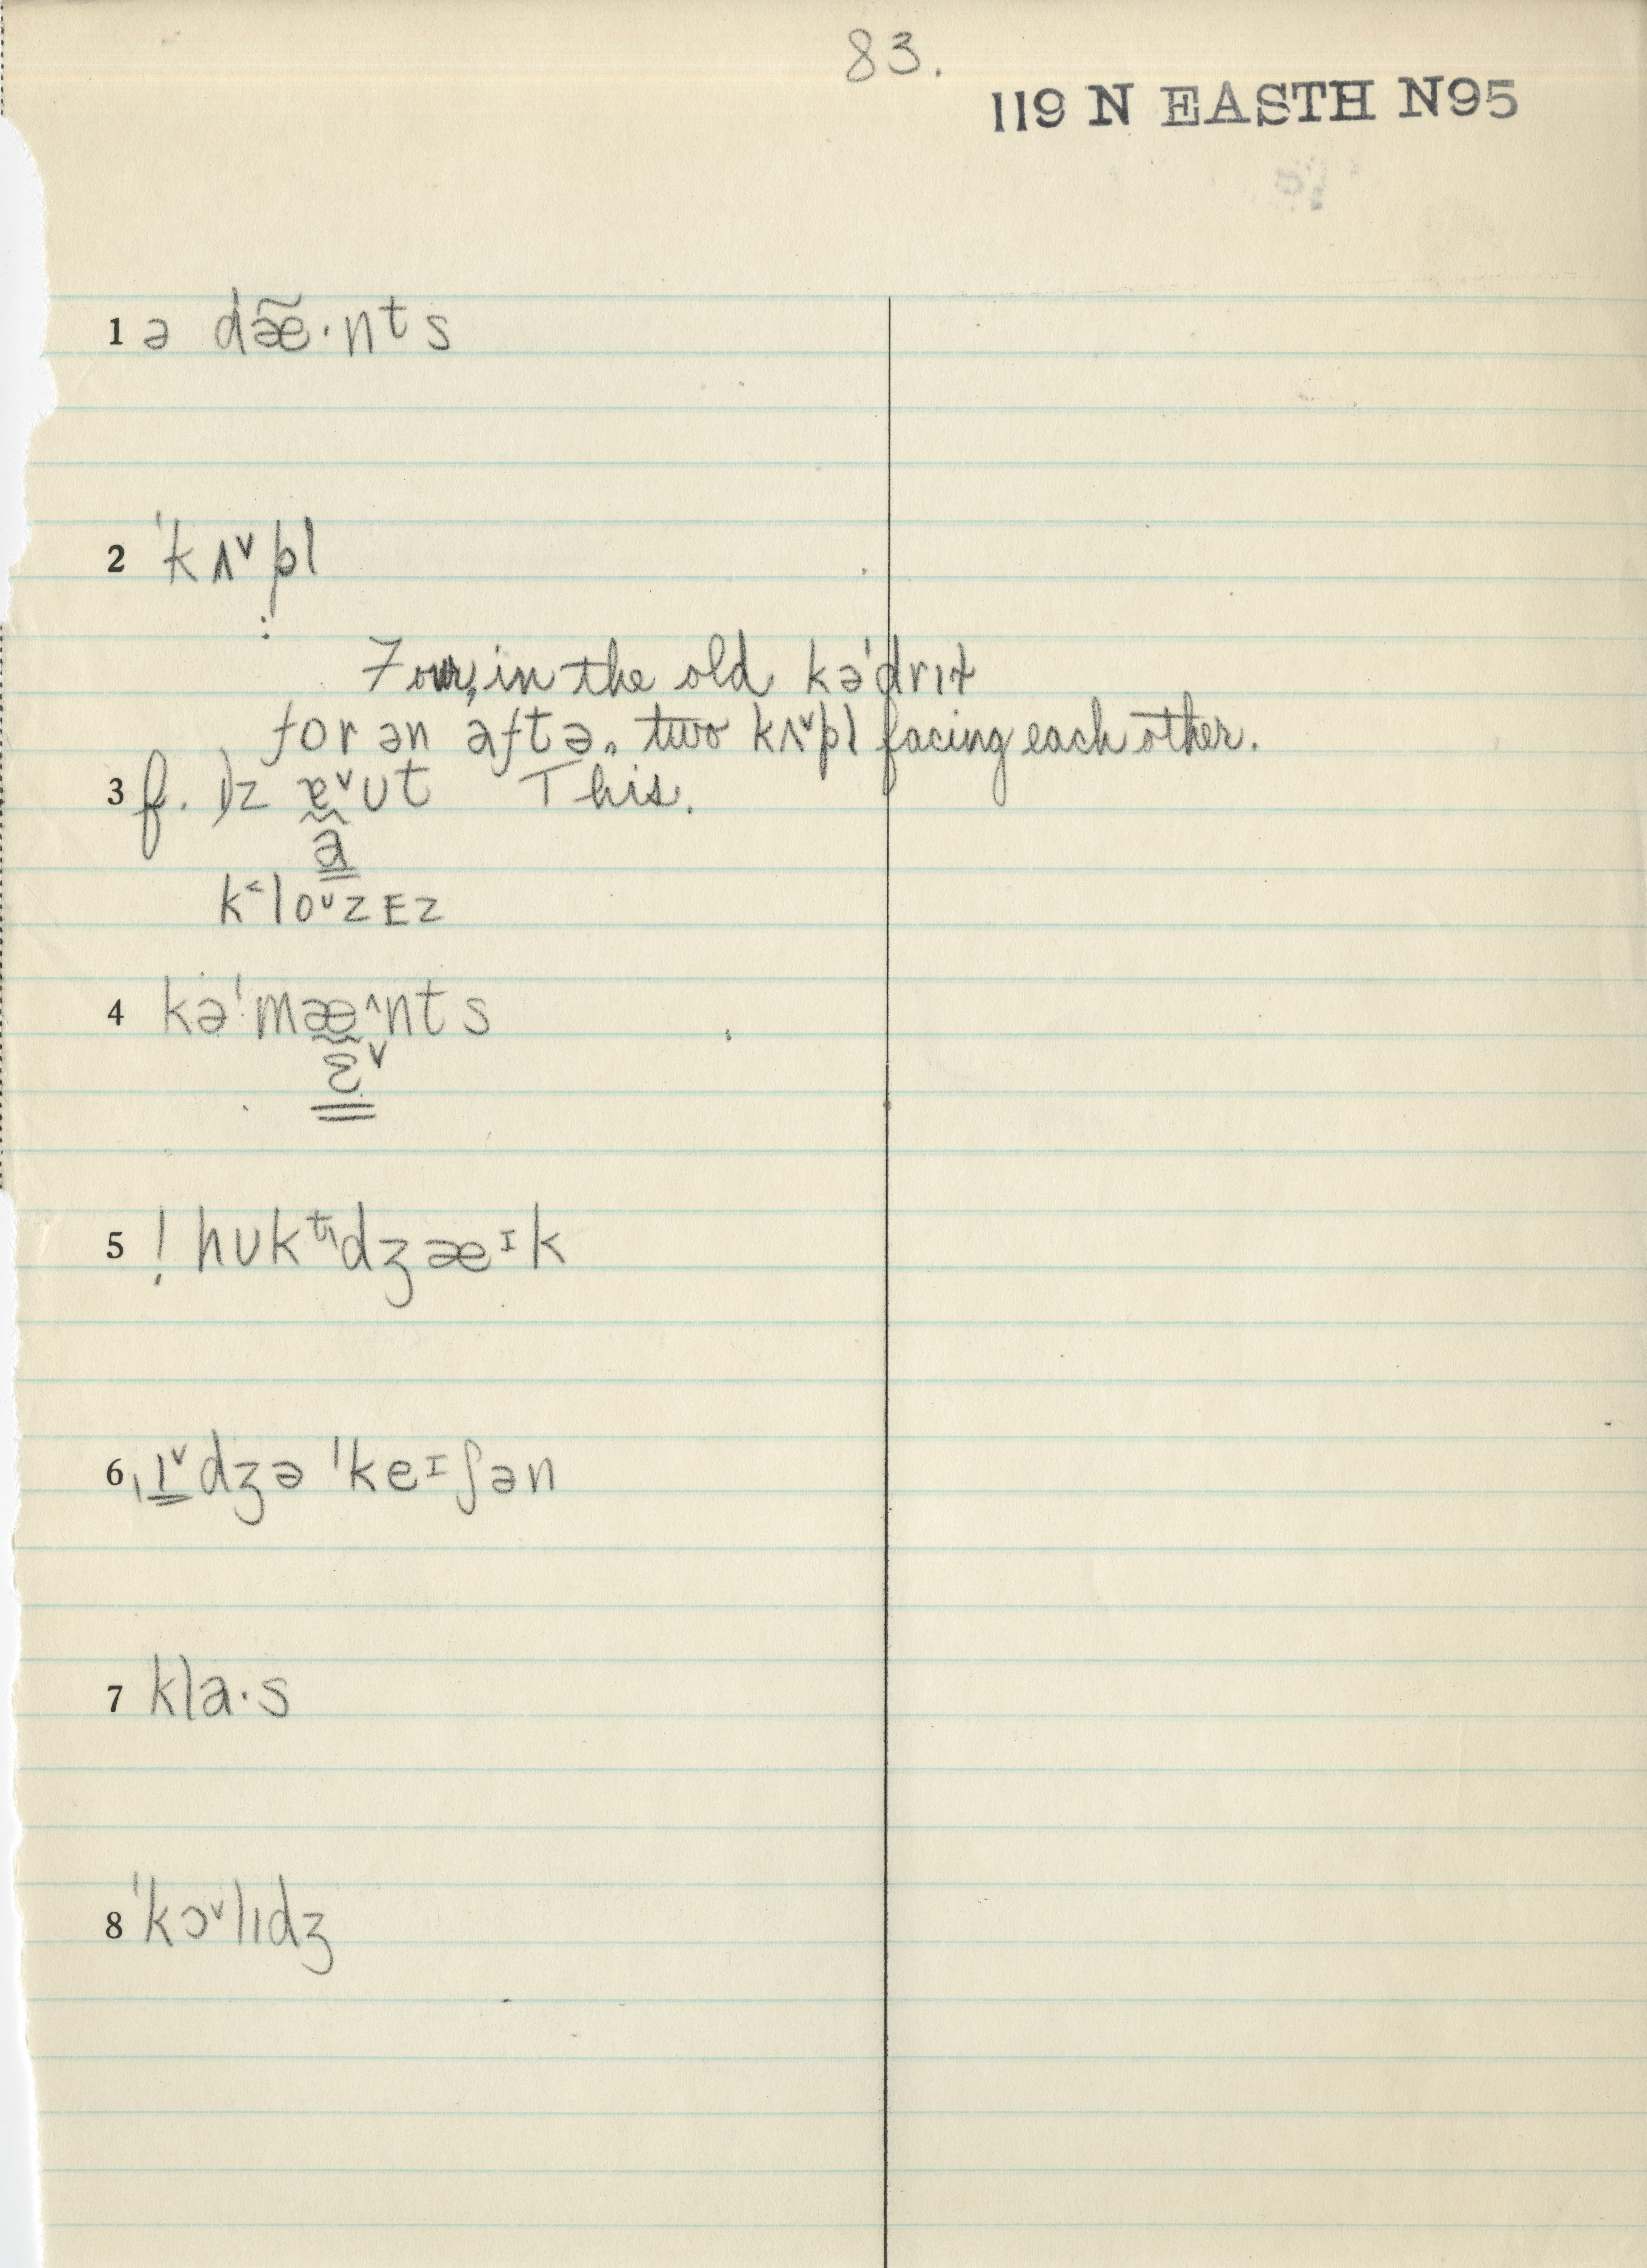 83.
119 N EASTH N95
1 ə dæ̃·nts
2 ˈkʌ˅pl
Four, in the old kəˈdrɪɫ
for ən aftə. two kʌ˅pl facing each other.
3 f. ɪz ɐ˅ʊt This.
a
k˂loᴜzEz
4 kəˈmæ^nts
ɛ˅
5 ! hʊkᵗɪdʒæᴵk
6 ˌɪ˅dʒəˈkeᴵʃən
7 kla·s
8 ˈkɔ˅lɪdʒ